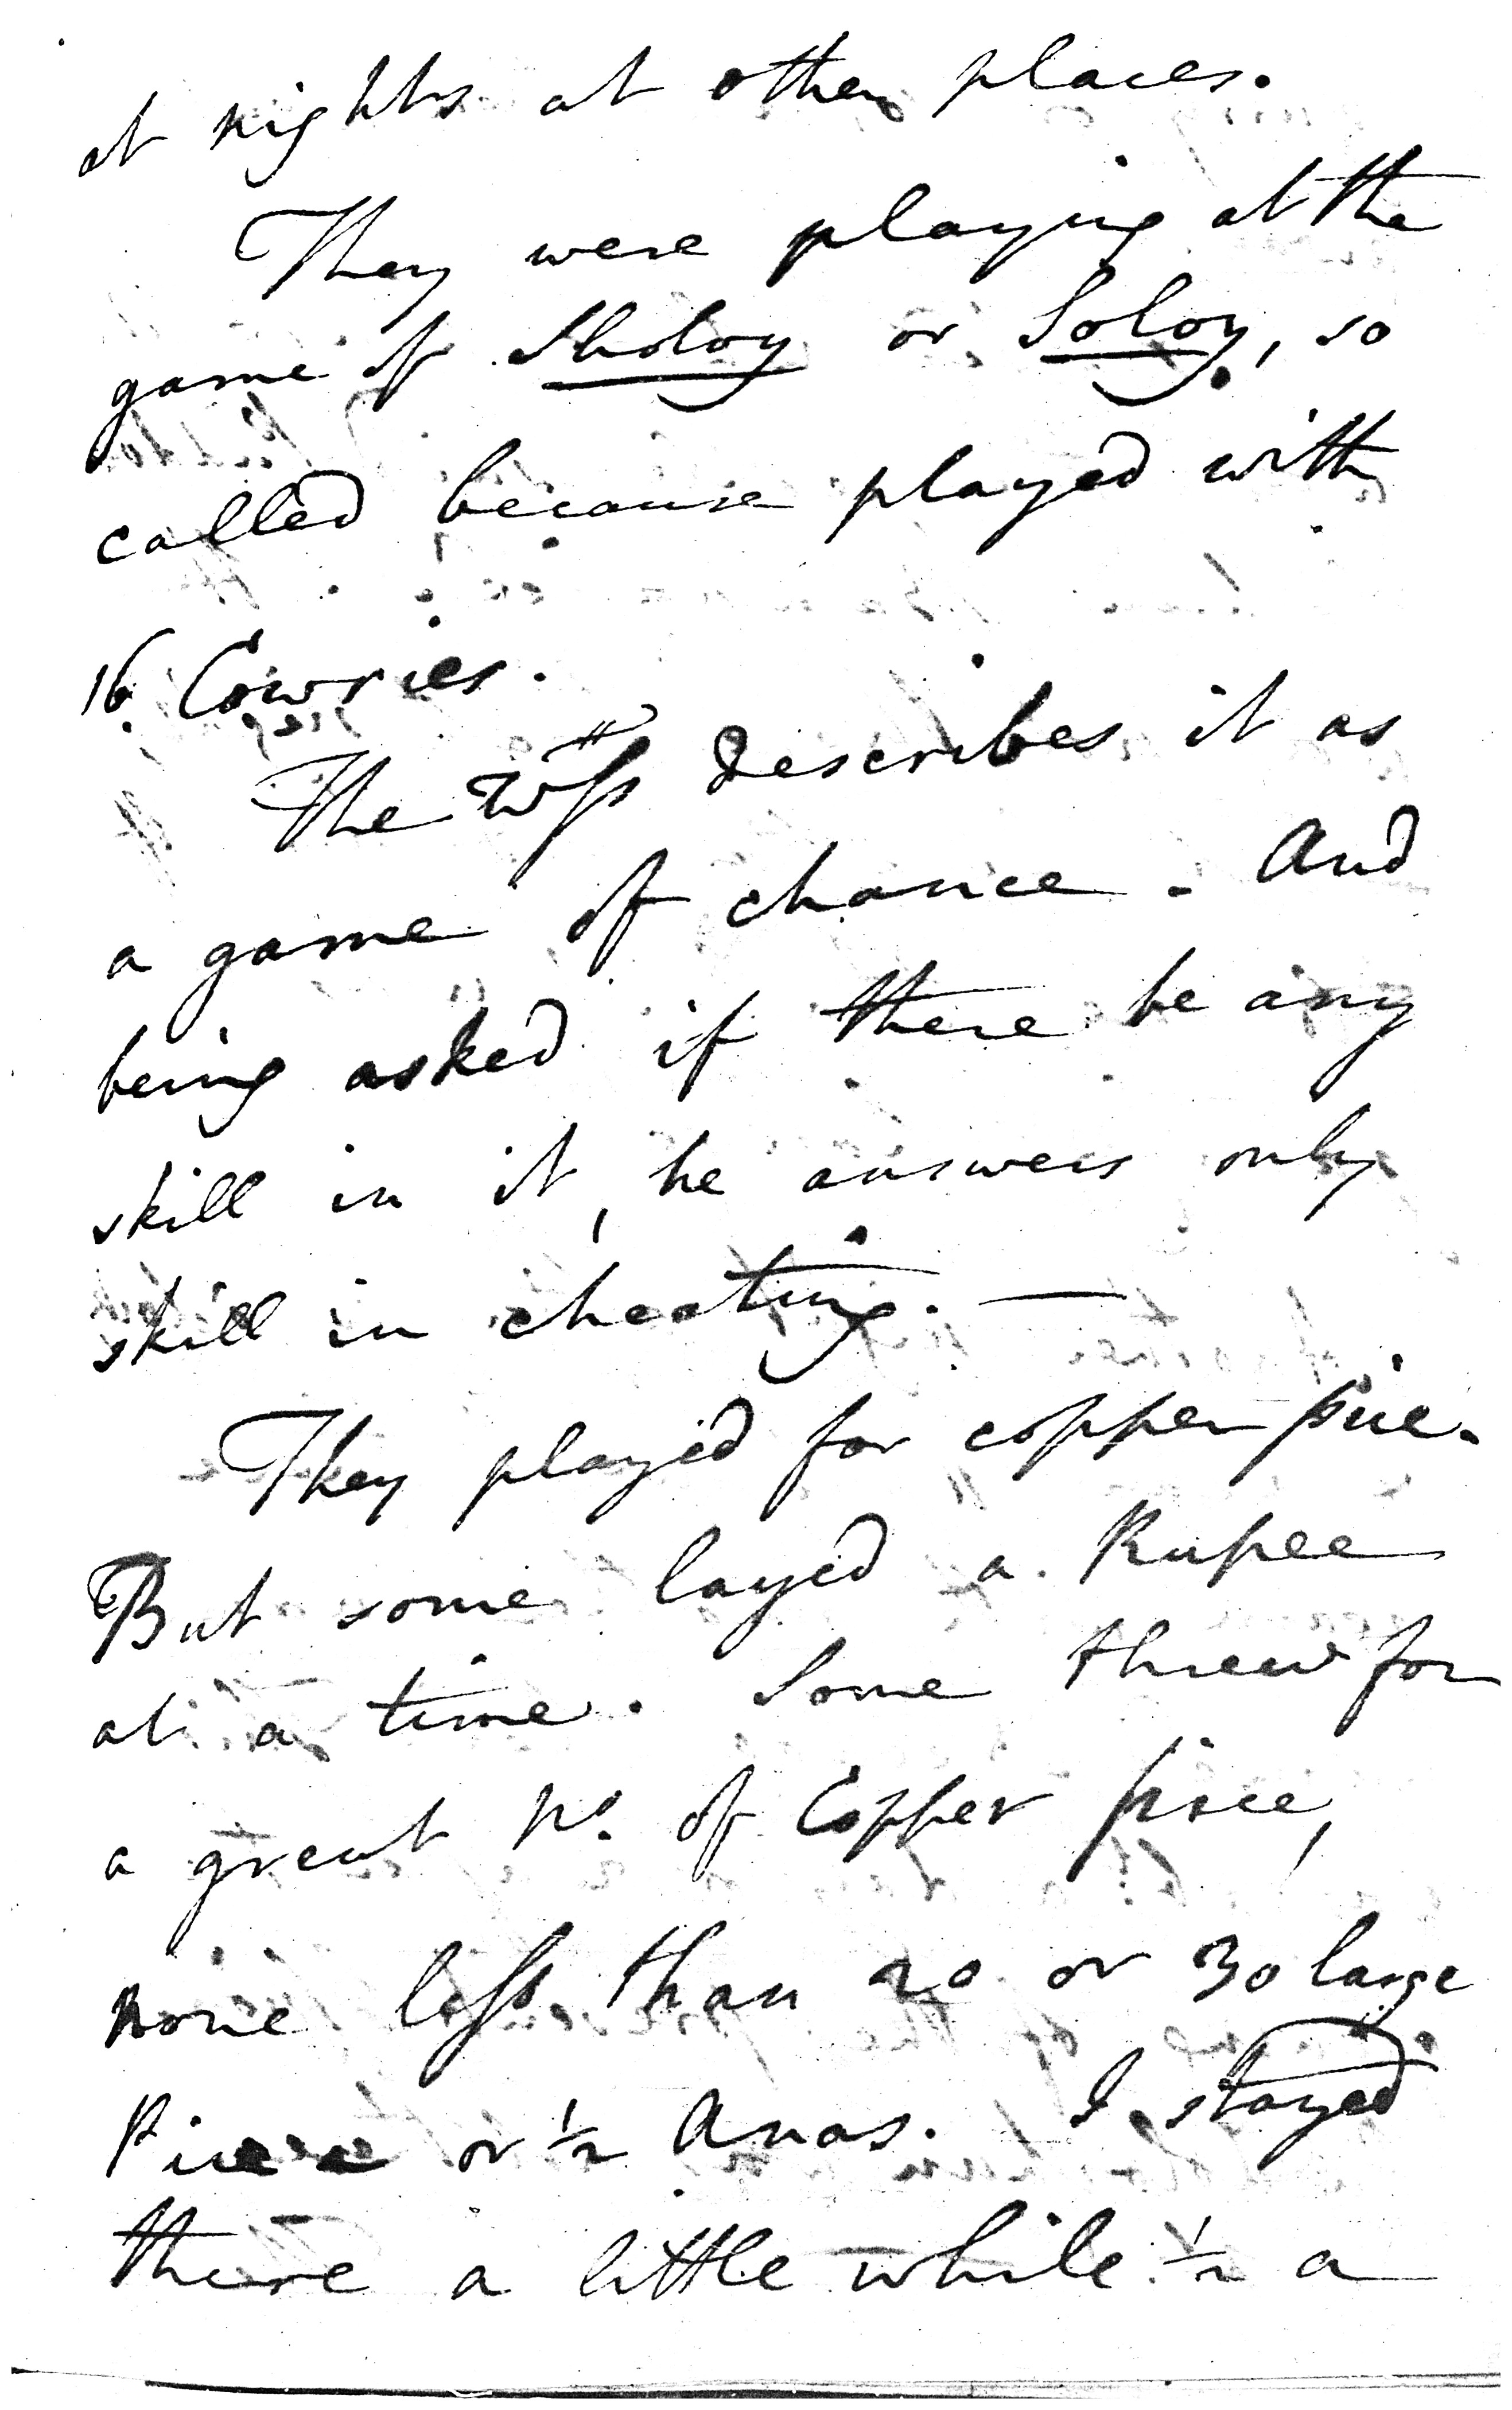 at nights at other places.
They were playing at the
game of Sholoy or Soloy, so
called because played with
16 Cowries.
The Wss describes it as
a game of chance. And
being asked if there be any
skill in it, he answers only
skill in cheating. —
They played for copper pice.
But some layed a Rupee
at a time. Some threw for
a great No. of Copper pice,
none less than 20 or 30 large
Pice or ½ Anas. I stayed
there a little while ½ a